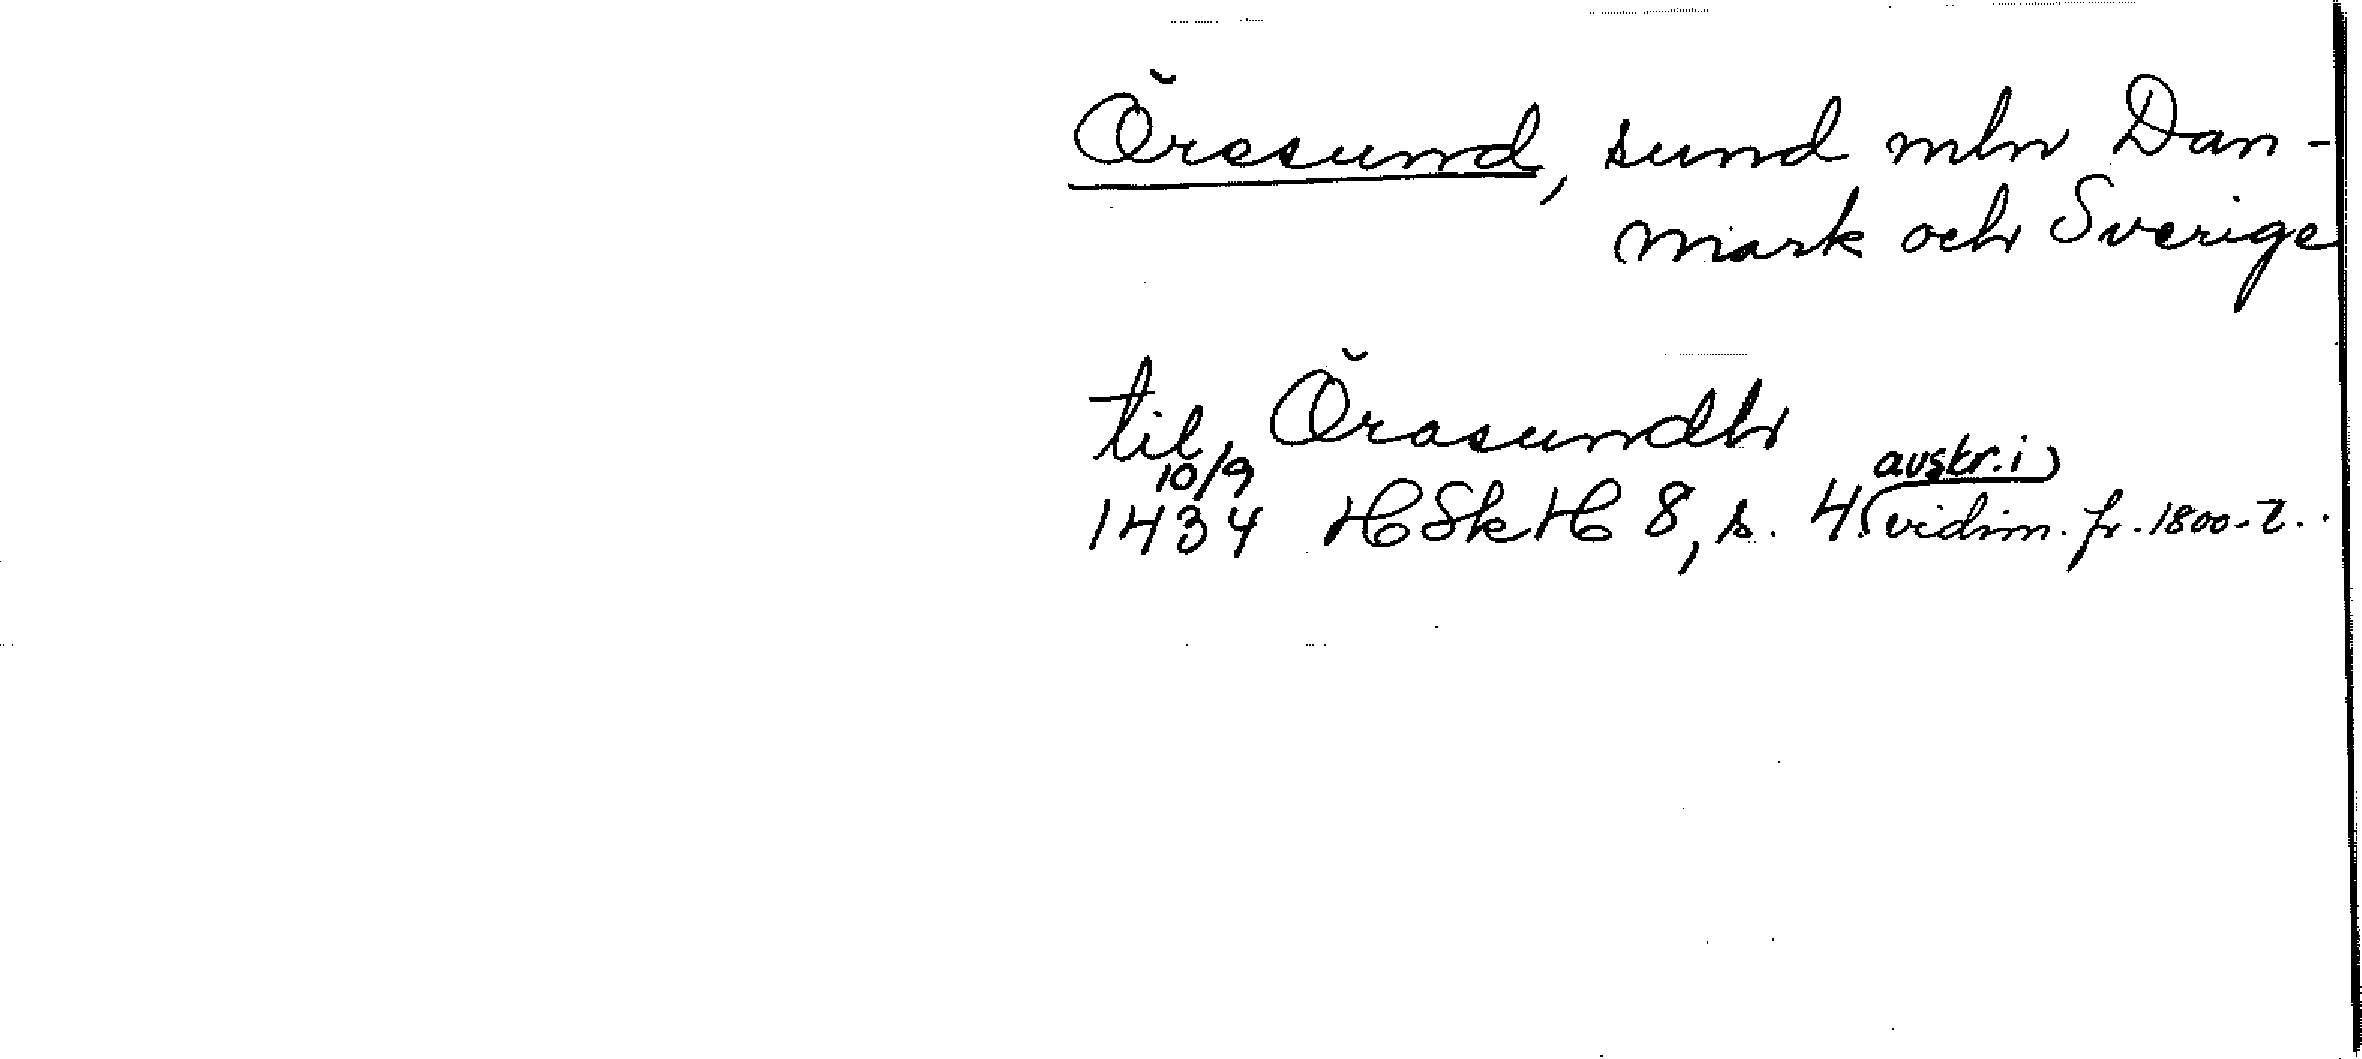 Öresund, sund mln Dan-
mark och Sverige
til Örasundh
10/9
1434 HSkH 8, s. 4 (avskr. i
vidim. fr. 1800-t..